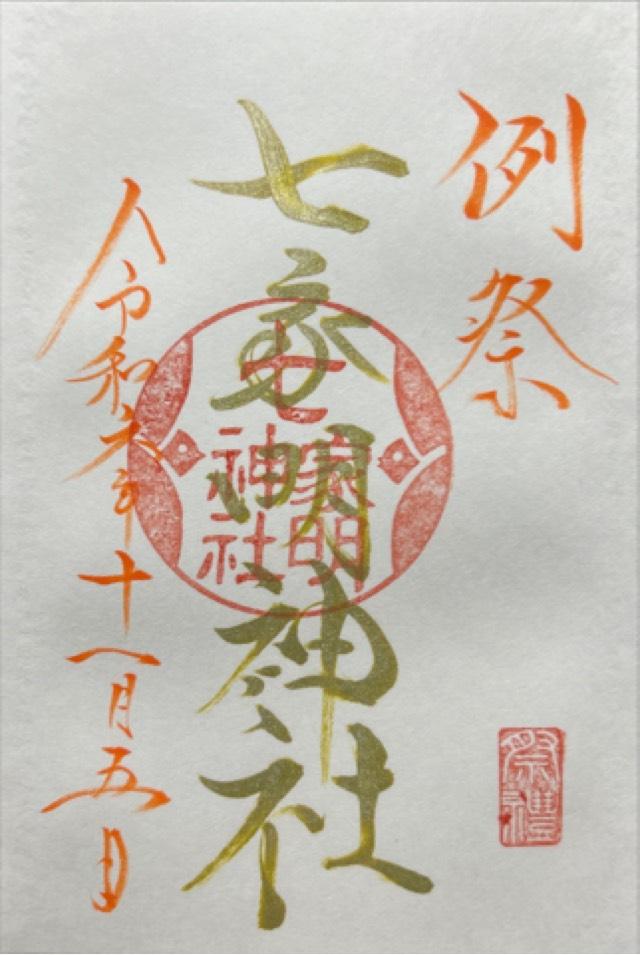 例祭
七家明神社
令和六年十一月五日
七
家明
神社
祭禮